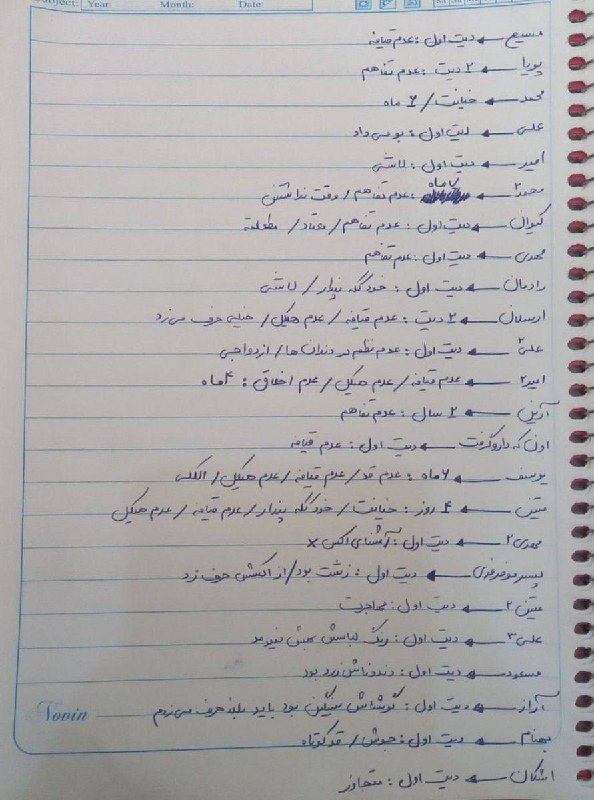 Subject: Year: Month: Date:
مسیح ← دیت اول : عدم قیافه
پویا ← ۲ دیت : عدم تفاهم
محمد ← خیانت / ۶ ماه
علی ← دیت اول : بو می داد
امیر ← دیت اول : لاشی
محمد۲ ← ۷ ماه : عدم تفاهم / وقت نداشتن
کیوان ← دیت اول : عدم تفاهم / معتاد / مطلقه
مهدی ← دیت اول : عدم تفاهم
رادمان ← دیت اول : خودگنده پندار / لاشی
ارسلان ← ۲ دیت : عدم قیافه / عدم هیکل / خیلی حرف می زد
علی۲ ← دیت اول : عدم نظم در دندان ها / ازدواجی
امیر۲ ← عدم قیافه / عدم هیکل / عدم اخلاق : ۴ ماه
آرتین ← ۲ سال : عدم تفاهم
اون که دارو گرفت ← دیت اول : عدم قیافه
یوسف ← ۶ ماه : عدم قد / عدم قیافه / عدم هیکل / الکلی
متین ← ۴ روز : خیانت / خودگنده پندار / عدم قیافه / عدم هیکل
مهدی۲ ← دیت اول : آشنای اکس x
پسر مو فرفری ← دیت اول : زشت بود / از اکسش حرف زد
متین ۲ ← دیت اول : مهاجرت
علی۳ ← دیت اول : رنگ لباسش بهش نمیومد
مسعود ← دیت اول : دندوناش زرد بود
آراز ← دیت اول : گوشاش سنگین بود باید بلند حرف می زدم
بهنام ← دیت اول : جوش / قد کوتاه
اشکان ← دیت اول : متجاوز
Novin